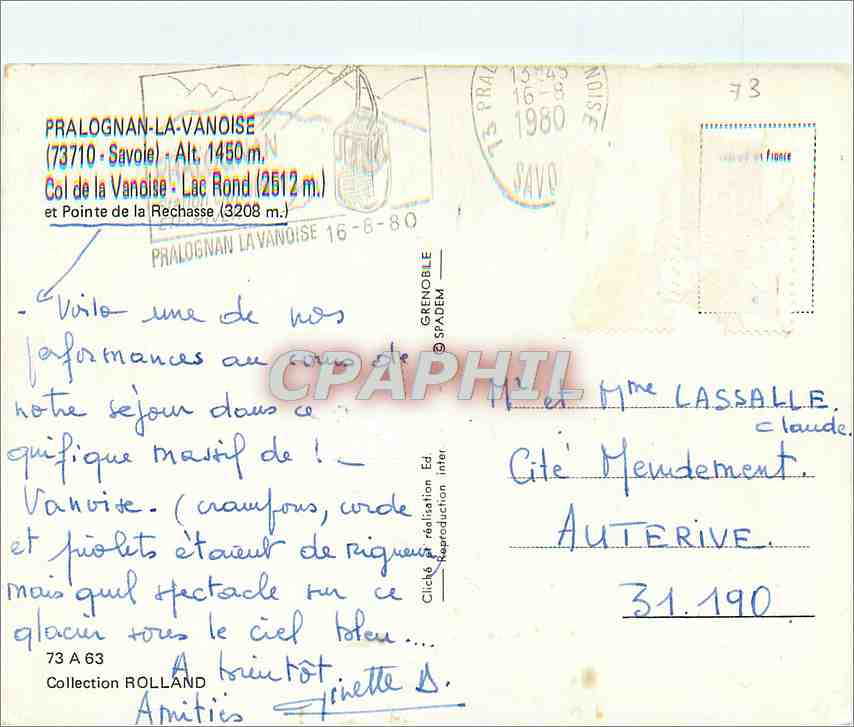 73
PRALOGNAN-LA-VANOISE
(73710 - Savoie) - Alt. 1450 m.
Col de la Vanoise - Lac Rond (2512 m.)
et Pointe de la Rechasse (3208 m.)
PRALOGNAN LA VANOISE 16-8-80
13H45
16-8
1980
73 PRAL NOISE
SAVO
- Voila une de nos
performances au cours de
notre séjour dans ce
quifique massif de ! -
Vanoise. (crampons, corde
et piolets étaient de rigueur
mais quel spectacle sur ce
glacier sous le ciel bleu....
A bientôt.
Amitiés Ginette D.
73 A 63
Collection ROLLAND
GRENOBILE
© SPADEM
Cliché et réalisation Ed.
Reproduction inter
CPAPHIL
Mr et Mme LASSALLE.
Claude.
Cité Mendement.
AUTERIVE.
31.190